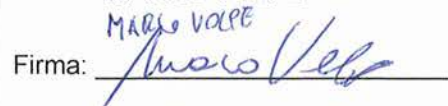 MARCO VOLPE
Firma: Marco Volpe